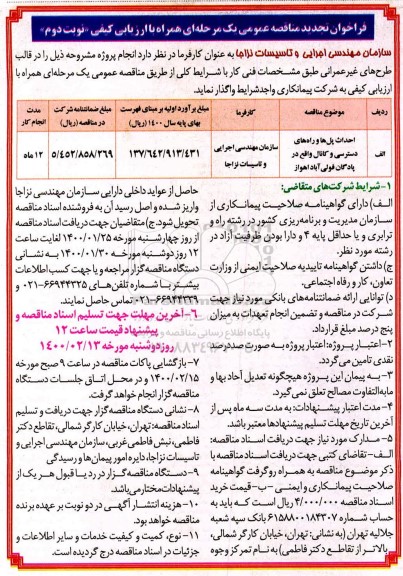 فراخوان تجدید مناقصه عمومی یک مرحله‌ای همراه با ارزیابی کیفی «نوبت دوم»
سازمان مهندسی اجرایی و تاسیسات نزاجا به عنوان کارفرما در نظر دارد انجام پروژه مشروحه ذیل را در قالب
طرح‌های غیرعمرانی طبق مشخصات فنی کار با شرایط کلی از طریق مناقصه عمومی یک مرحله‌ای همراه با
ارزیابی کیفی به شرکت پیمانکاری واجد شرایط واگذار نماید.
ردیف موضوع مناقصه کارفرما مبلغ برآورد اولیه بر مبنای فهرست بهای پایه سال ۱۴۰۰ (ریال) مبلغ ضمانتنامه شرکت در مناقصه (ریال) مدت انجام کار
الف احداث پل‌ها و راه‌های دسترسی و کانال واقع در پادگان قولی‌آباد اهواز سازمان مهندسی اجرایی و تاسیسات نزاجا ۱۳۷/۶۴۲/۹۱۳/۴۳۱ ۵/۴۵۲/۸۵۸/۲۶۹ ۱۲ ماه
۱- شرایط شرکت‌های متقاضی:
الف) دارای گواهینامه صلاحیت پیمانکاری از
سازمان مدیریت و برنامه‌ریزی کشور در رشته راه و
ترابری و یا حداقل پایه ۴ و دارا بودن ظرفیت آزاد در
رشته مورد نظر.
ج) داشتن گواهینامه تاییدیه صلاحیت ایمنی از وزارت
تعاون، کار و رفاه اجتماعی.
د) توانایی ارائه ضمانتنامه‌های بانکی مورد نیاز جهت
شرکت در مناقصه و تضمین انجام تعهدات به میزان
پنج درصد مبلغ قرارداد.
۲- اعتبار پروژه: اعتبار پروژه به صورت صد درصد
نقدی تامین می‌گردد.
۳- به پیمان این پروژه هیچگونه تعدیل آحاد بها و
مابه‌التفاوت مصالح تعلق نمی‌گیرد.
۴- مدت اعتبار پیشنهادات: به مدت سه ماه پس از
آخرین تاریخ مهلت تسلیم پیشنهادها معتبر باشد.
۵- مدارک مورد نیاز جهت دریافت اسناد مناقصه:
الف- تقاضای کتبی جهت دریافت اسناد مناقصه با
ذکر موضوع مناقصه به همراه رو گرفت گواهینامه
صلاحیت پیمانکاری و ایمنی -ب- قیمت خرید
اسناد مناقصه ۴/۰۰۰/۰۰۰ ریال است که باید به
حساب شماره ۶۱۵۸۸۰۰۱۸۴۳۰۷ بانک سپه شعبه
جلالیه تهران (به نشانی: تهران، خیابان کارگر شمالی،
بالاتر از تقاطع دکتر فاطمی) به نام تمرکز وجوه
حاصل از عواید داخلی دارایی سازمان مهندسی نزاجا
واریز شده و اصل رسید آن به فروشنده اسناد مناقصه
تحویل شود. ج) متقاضیان جهت دریافت اسناد مناقصه
از روز چهارشنبه مورخه ۱۴۰۰/۰۱/۲۵ لغایت ساعت
۱۲ روز دوشنبه مورخه ۱۴۰۰/۰۱/۳۰ به نشانی
دستگاه مناقصه گزار مراجعه و یا جهت کسب اطلاعات
بیشتر با شماره تلفن‌های ۶۶۹۴۴۳۲۵-۰۲۱ و
۶۶۹۴۴۳۳۹-۰۲۱ تماس حاصل نمایند.
۶- آخرین مهلت جهت تسلیم اسناد مناقصه و
پیشنهاد قیمت ساعت ۱۲
روز دوشنبه مورخه ۱۴۰۰/۰۲/۱۳
۷- بازگشایی پاکات مناقصه در ساعت ۹ صبح مورخه
۱۴۰۰/۰۲/۱۵ و در محل اتاق جلسات دستگاه
مناقصه گزار انجام خواهد گرفت.
۸- نشانی دستگاه مناقصه گزار جهت دریافت و تسلیم
اسناد مناقصه: تهران، خیابان کارگر شمالی، تقاطع دکتر
فاطمی، نبش فاطمی غربی، سازمان مهندسی اجرایی و
تاسیسات نزاجا، دایره امور پیمان‌ها و رسیدگی
۹- دستگاه مناقصه گزار در رد یا قبول هر یک از
پیشنهادات مختار می‌باشد.
۱۰- هزینه انتشار آگهی در دو نوبت بر عهده برنده
مناقصه خواهد بود.
۱۱- نوع، کمیت و کیفیت خدمات و سایر اطلاعات و
جزئیات در اسناد مناقصه درج گردیده است.